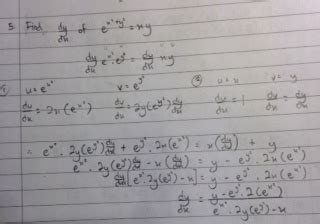 5. Find dy/dx of e^(x²+y²) = xy
dy/dx e^(x²).e^(y²) = dy/dx xy
① u = e^(x²) v = e^(y²) ② u = x v = y
du/dx = 2x(e^(x²)) dv/dx = 2y(e^(y²)) dy/dx du/dx = 1 dv/dx = dy/dx
∴ e^(x²) . 2y(e^(y²)) dy/dx + e^(y²) . 2x(e^(x²)) = x(dy/dx) + y
e^(x²) . 2y(e^(y²)) dy/dx - x(dy/dx) = y - e^(y²) . 2x(e^(x²))
dy/dx [e^(x²) . 2y(e^(y²)) - x] = y - e^(y²) . 2x(e^(x²))
dy/dx = (y - e^(y²) . 2x(e^(x²))) / (e^(x²) . 2y(e^(y²)) - x)